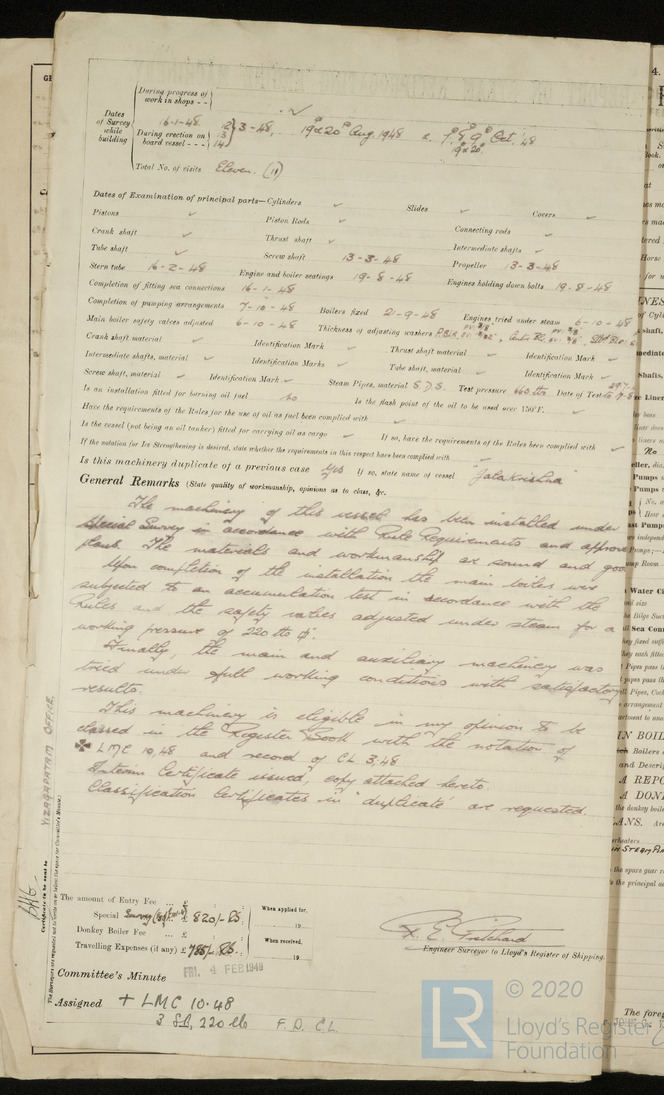 During progress of work in shops - -
16-1-48
Dates of Survey while building
During erection on board vessel - - -
12 13 14 } 3-48, 19th & 20th Aug. 1948 & 7th 8th 9th Oct. '48
19th 20th
Total No. of visits Eleven. (11)
Dates of Examination of principal parts—Cylinders ✓ Slides ✓ Covers ✓
Pistons ✓ Piston Rods ✓ Connecting rods ✓
Crank shaft ✓ Thrust shaft ✓ Intermediate shafts ✓
Tube shaft ✓ Screw shaft 13-3-48 Propeller 13-3-48
Stern tube 16-2-48 Engine and boiler seatings 19-8-48 Engines holding down bolts 19-8-48
Completion of fitting sea connections 16-1-48
Completion of pumping arrangements 7-10-48 Boilers fixed 21-9-48 Engines tried under steam 6-10-48
Main boiler safety valves adjusted 6-10-48 Thickness of adjusting washers
Crank shaft material ✓ Identification Mark ✓ Thrust shaft material ✓ Identification Mark ✓
Intermediate shafts, material ✓ Identification Marks ✓ Tube shaft, material ✓ Identification Mark ✓
Screw shaft, material ✓ Identification Mark ✓ Steam Pipes, material S.D.S. Test pressure 660 lbs Date of Test
Is an installation fitted for burning oil fuel no Is the flash point of the oil to be used over 150°F. ✓
Have the requirements of the Rules for the use of oil as fuel been complied with ✓
Is the vessel (not being an oil tanker) fitted for carrying oil as cargo ✓ If so, have the requirements of the Rules been complied with ✓
If the notation for Ice Strengthening is desired, state whether the requirements in this respect have been complied with ✓
Is this machinery duplicate of a previous case Yes If so, state name of vessel "Jalakrishna"
General Remarks (State quality of workmanship, opinions as to class, &c.
The machinery of this vessel has been installed under
Special Survey in accordance with Rule Requirements and approved
plans. The materials and workmanship are sound and good
Upon completion of the installation the main boilers were
subjected to an accumulation test in accordance with the
Rules and the safety valves adjusted under steam for a
working pressure of 220 lbs □".
Finally, the main and auxiliary machinery was
tried under full working conditions with satisfactory
results.
This machinery is eligible in my opinion to be
classed in the Register Book with the notation of
✠ LMC 10,48 and record of CL 3,48
Interim Certificate issued, copy attached hereto.
Classification Certificates in "duplicate" are requested.
VIZAGAPATAM OFFICE.
Certificate to be sent to
(The Surveyors are requested not to write on or below the space for Committee's Minute.)
The amount of Entry Fee ... £
Special £ 820/- Rs.
Donkey Boiler Fee ... £
Travelling Expenses (if any) £ 785/- Rs.
When applied for,
19
When received,
19
F. E. Pritchard
Engineer Surveyor to Lloyd's Register of Shipping.
FRI. 4 FEB 1949
Committee's Minute
Assigned + LMC 10.48
3 SB, 220 lb F. D. C.L.
© 2020
LR
Lloyd's Register
Foundation